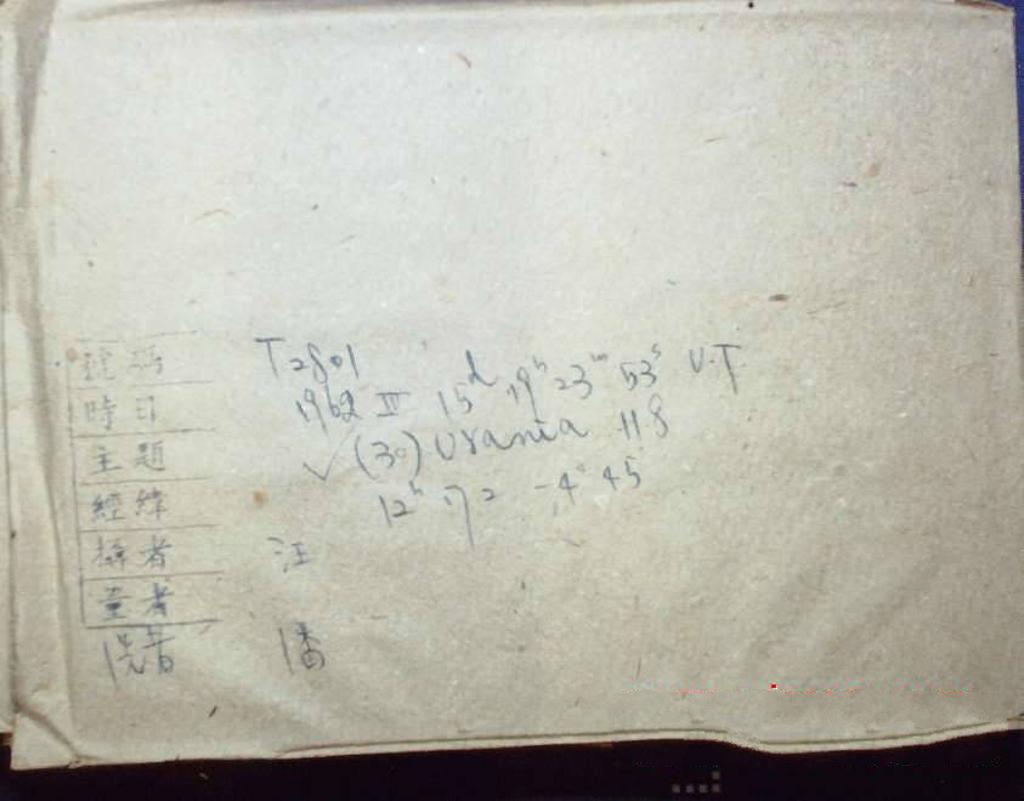 號碼 T2801
時日 1962 III 15d 19h 23m 53s U.T.
主題 ✓ (30) Urania 118
經緯 12h 17.2 -4° 45
攝者 汪
量者
洗者 潘